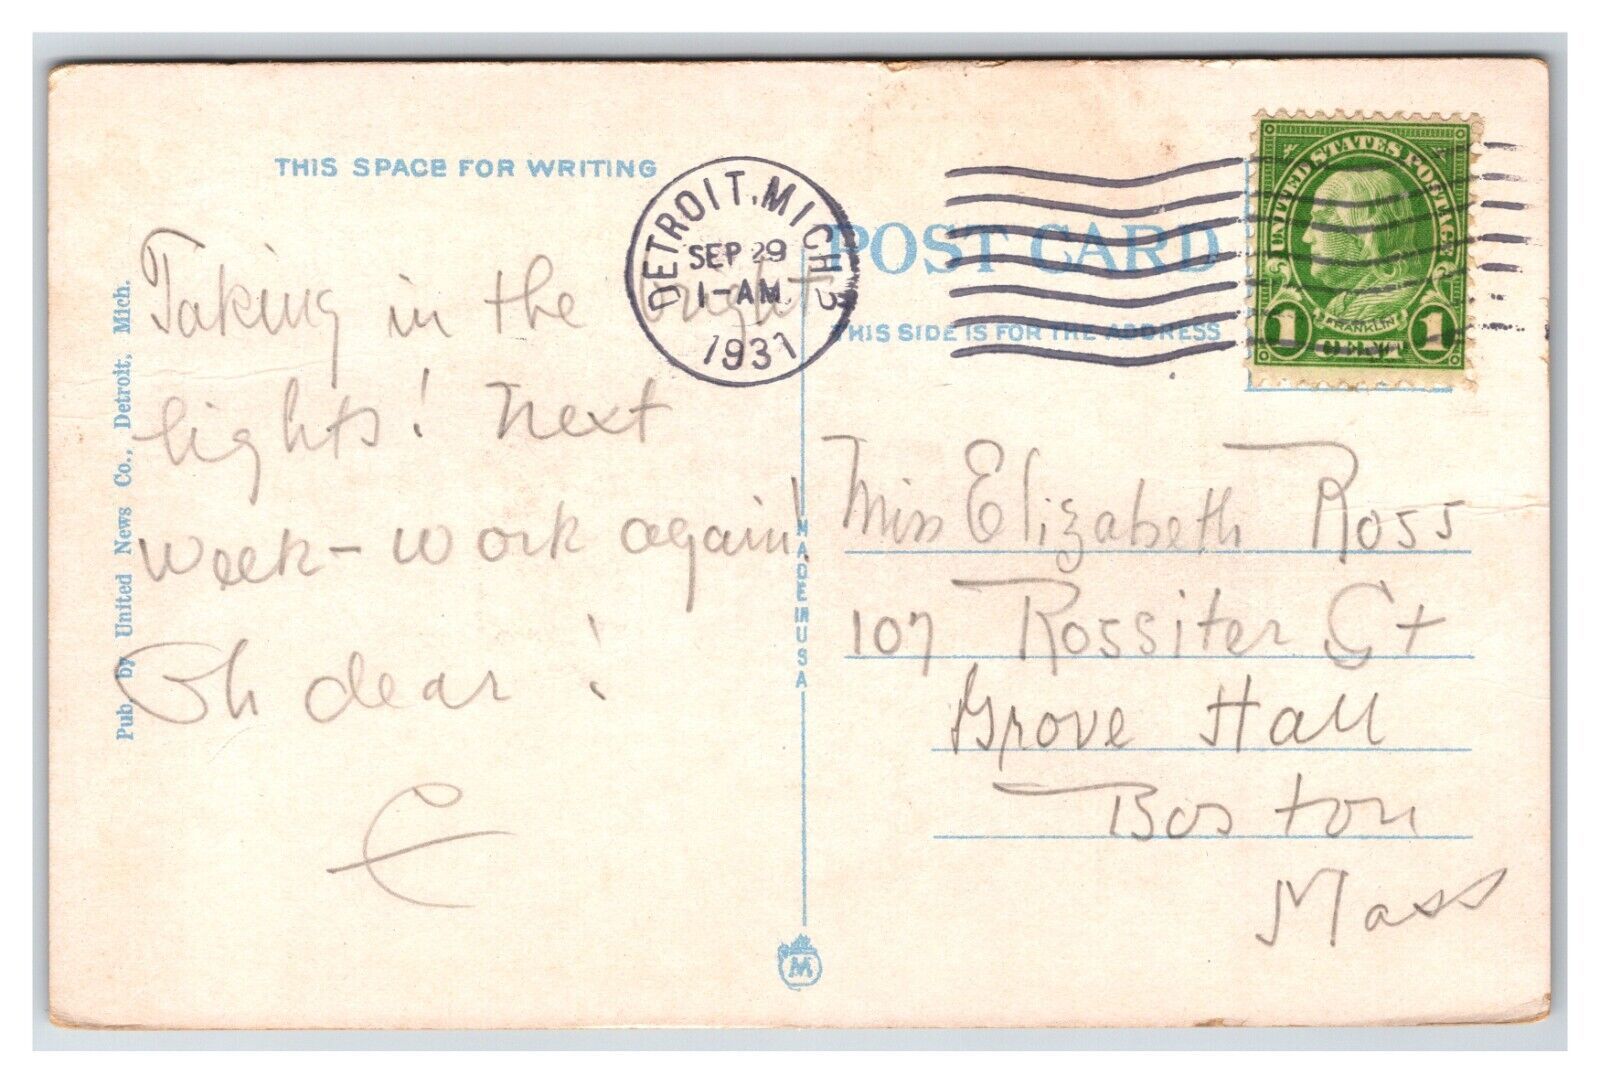 THIS SPACE FOR WRITING
DETROIT, MICH
SEP 29
1-AM
1931
UNITED STATES POSTAGE
FRANKLIN
1 CENT 1
POST CARD
THIS SIDE IS FOR THE ADDRESS
Taking in the night
lights! Next
week - work again!
Oh dear!
E
Pub. by United News Co., Detroit, Mich.
MADE IN USA
M
Miss Elizabeth Ross
107 Rossiter Ct
Grove Hall
Boston
Mass